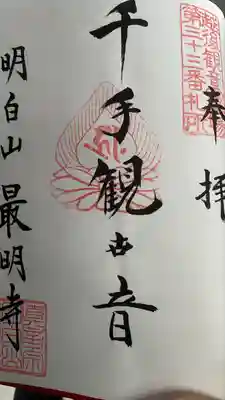 奉拝
越後観音霊場
第二十三番札所
千手観世音
明白山 最明寺